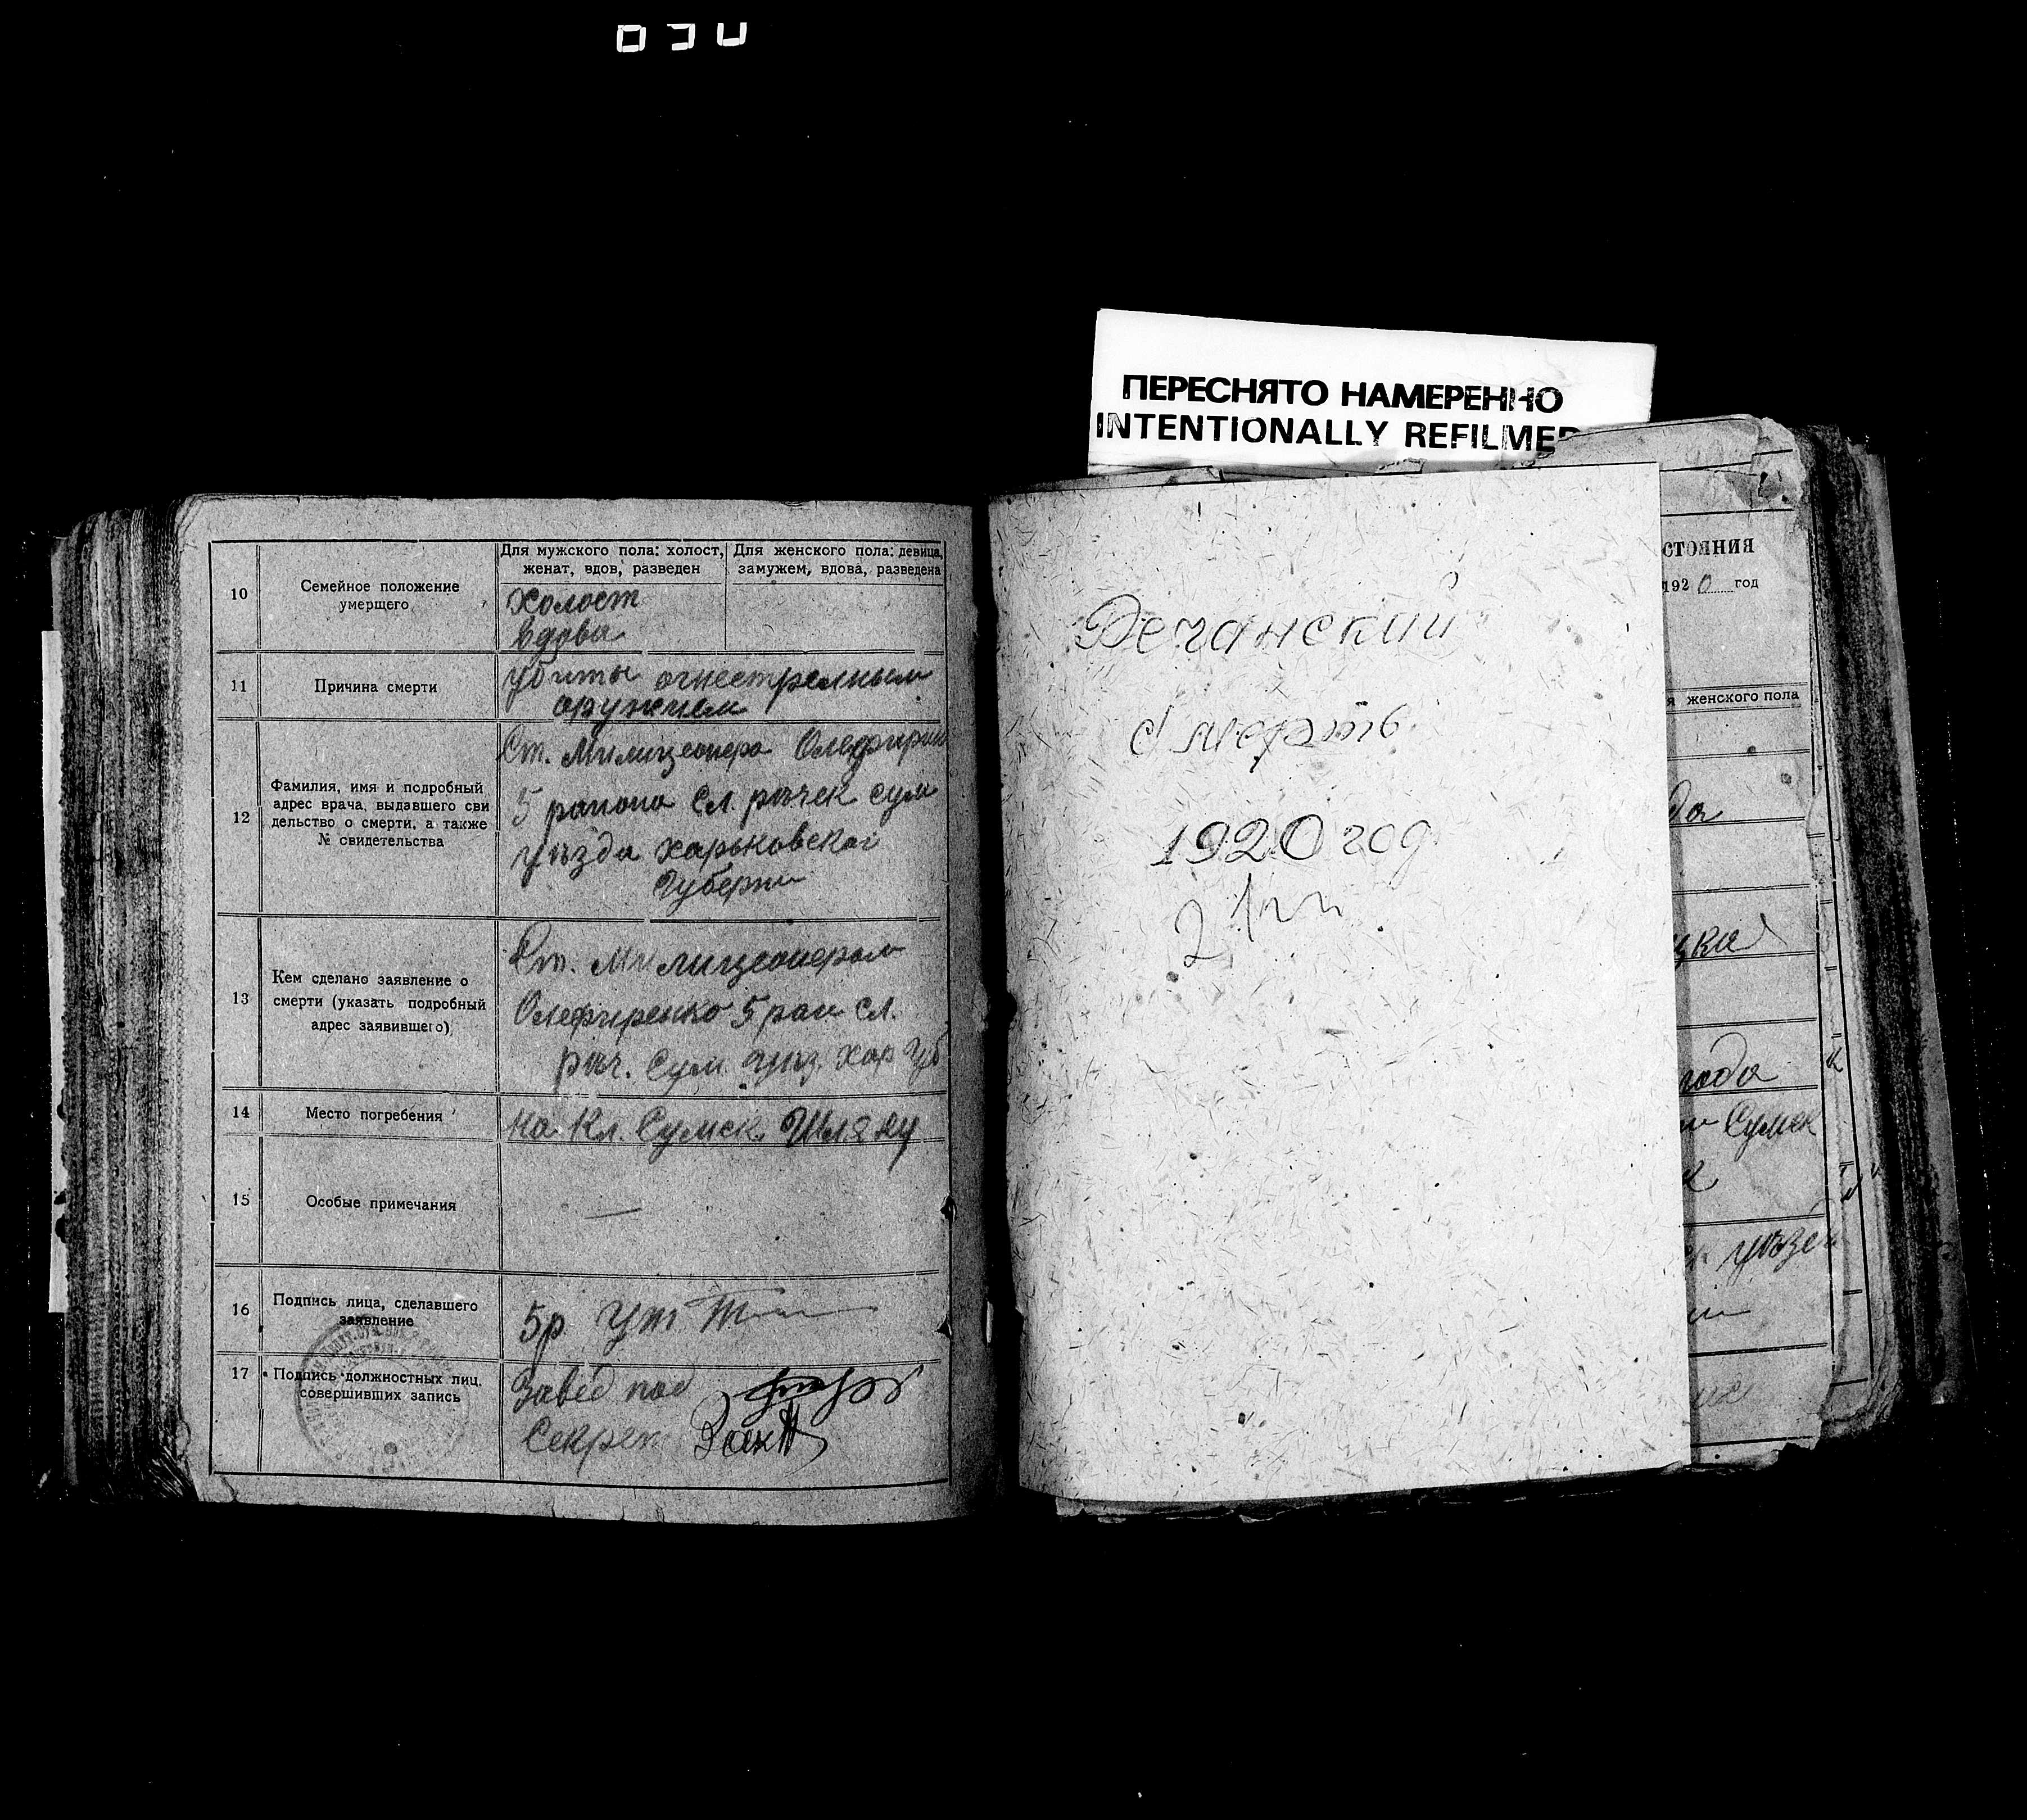 ПЕРЕСНЯТО НАМЕРЕННО
INTENTIONALLY REFILMED
10
Семейное положение
умершего
Для мужского пола: холост,
женат, вдов, разведен
Для женского пола: девица,
замужем, вдова, разведена
Холост
вдова
11
Причина смерти
убиты огнестрелным
оружием
12
Фамилия, имя и подробный
адрес врача, выдавшего сви
дельство о смерти, а также
№ свидетельства
Ст. Милицеонера
5 района Сл. речек Сум
уъзда харьковской
Губерни
13
Кем сделано заявление о
смерти (указать подробный
адрес заявившего)
Ст. Милицеонером
Олефиренко 5 рай сл.
реч. Сум. уъз. Хар Губ
14
Место погребения
на Кл. Сумск. Шляху
15
Особые примечания
—
16
Подпись лица, сделавшего
заявление
5р
17
Подпись должностных лиц,
совершивших запись
Завед под
Секрет
Речанский
Смерть
1920 год
стояния
1920 год
я женского пола
года
Сумск
уъзд